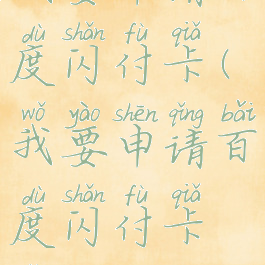 dù shǎn fù qiǎ
度闪付卡(
wǒ yào shēn qǐng bǎi
我要申请百
dù shǎn fù qiǎ
度闪付卡